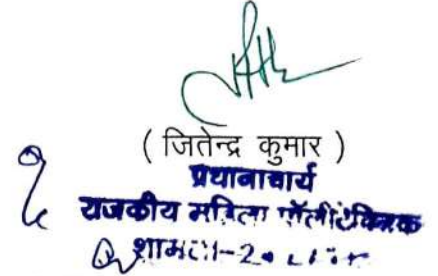 ( जितेन्द्र कुमार )
प्रधानाचार्य
राजकीय महिला पॉलीटेक्निक